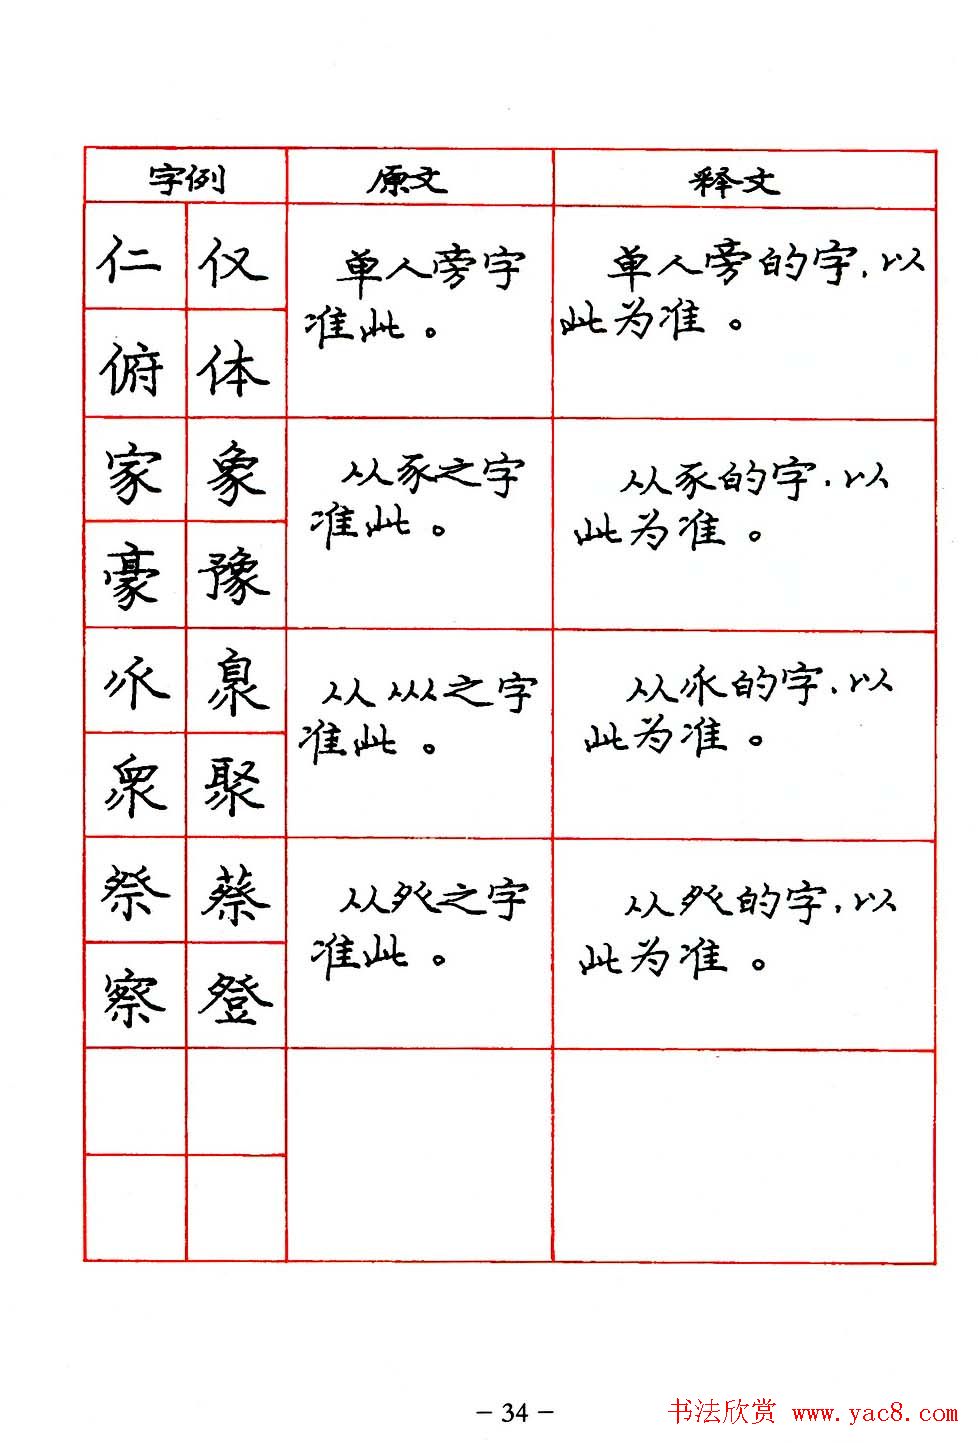 字例 原文 释文
仁 仪 单人旁字 单人旁的字,以
准此。 此为准。
俯 体
家 象 从豕之字 从豕的字,以
准此。 此为准。
豪 豫
乑 臮 从乑之字 从乑的字,以
准此。 此为准。
眾 聚
祭 蔡 从癶之字 从癶的字,以
准此。 此为准。
察 登
- 34 -
书法欣赏 www.yac8.com